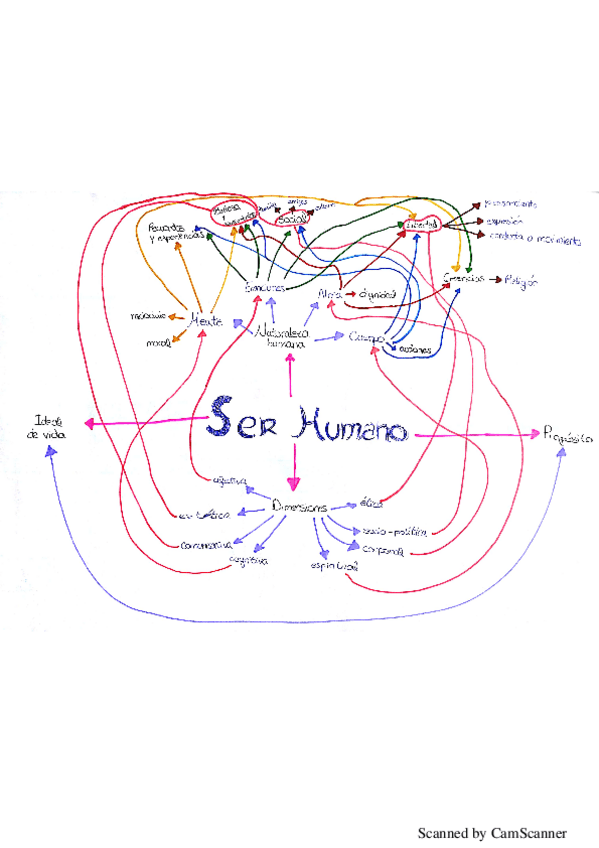 familia
amigos
Social
Libertad
pensamiento
expresión
conducta o movimiento
Recuerdos
y experiencias
Emociones
Alma
dignidad
Creencias
Religión
Mente
moral
Naturaleza
humana
Cuerpo
acciones
Ser Humano
Ideal
de vida
Propósito
afectiva
Dimensiones
ética
estética
socio-política
comunicativa
corporal
cognitiva
espiritual
Scanned by CamScanner